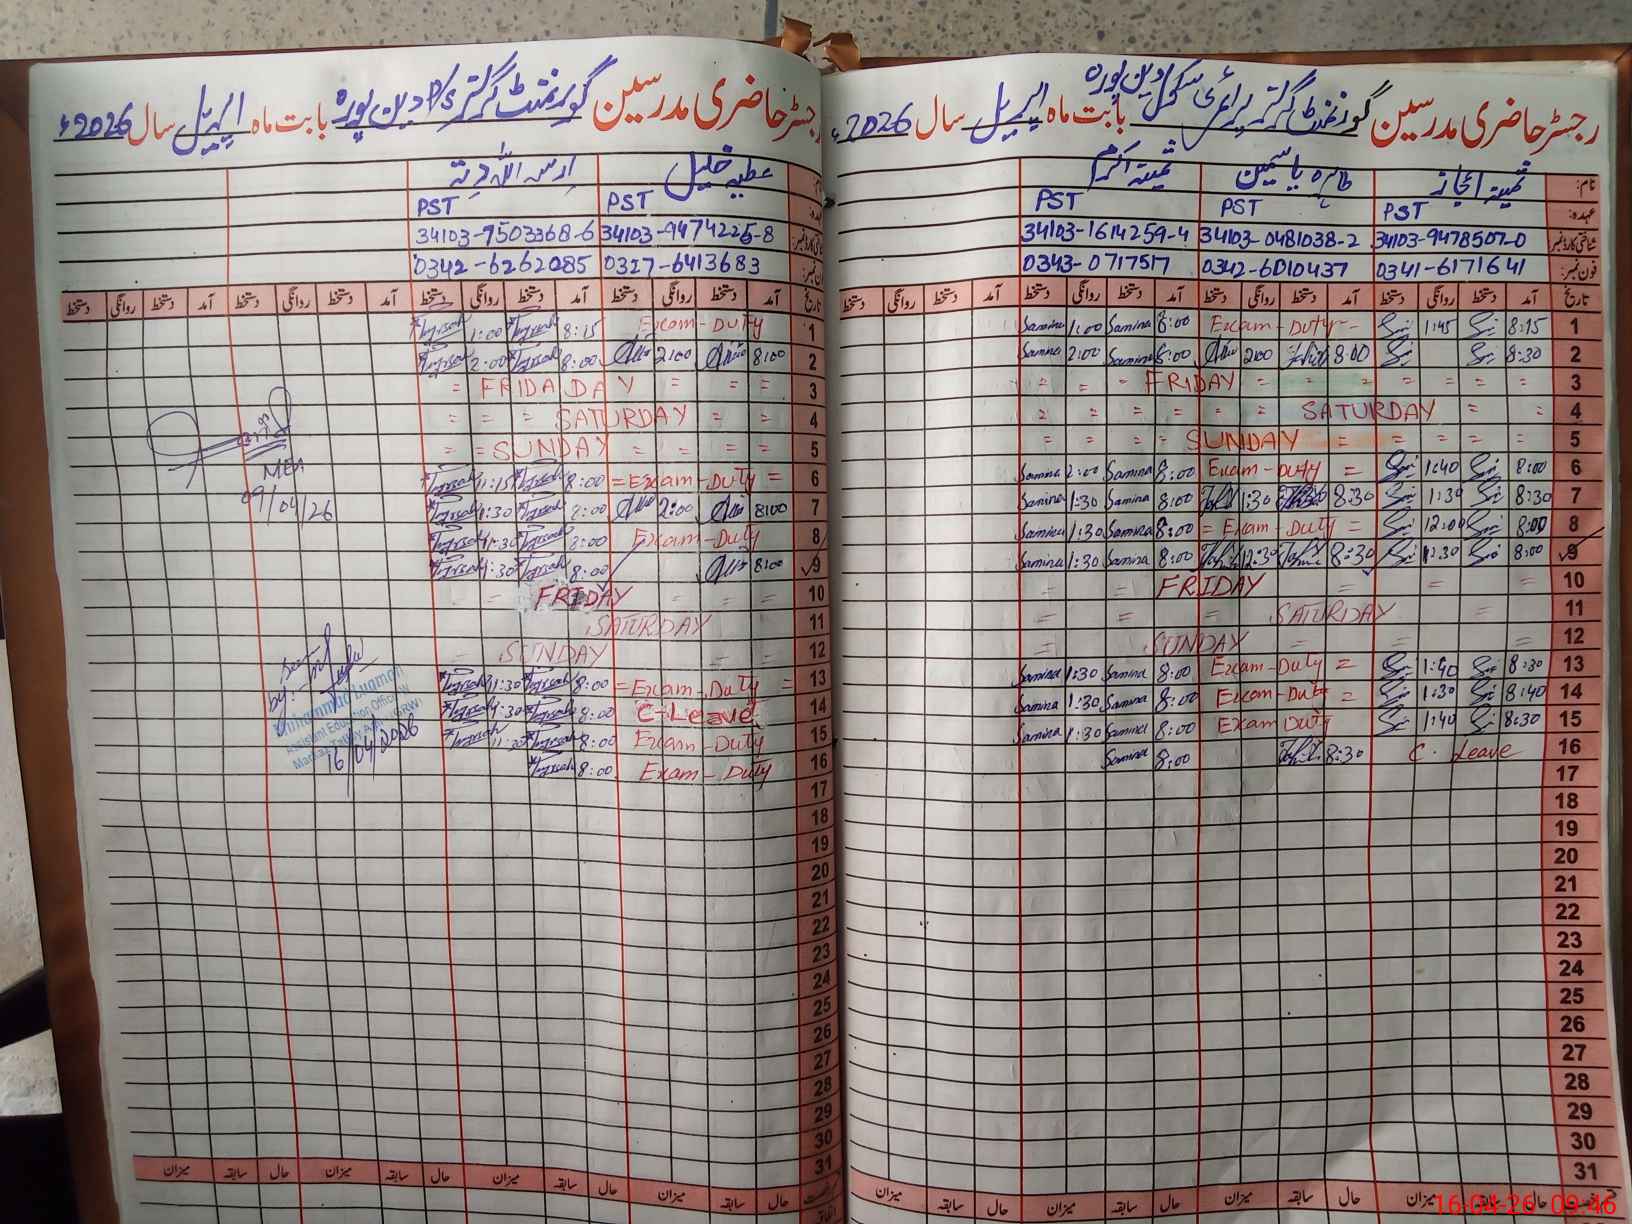 رجسٹر حاضری مدرسین گورنمنٹ گرلز پرائمری سکول دین پورہ بابت ماہ اپریل سال 2026ء
نام: ثمینہ اعجاز طاہرہ یاسمین ثمینہ اکرم
عہدہ: PST PST PST
شناختی کارڈ نمبر: 34103-9478507-0 34103-0481038-2 34103-1614259-4
فون نمبر: 0341-6171641 0342-6010437 0343-0717517
تاریخ آمد دستخط روانگی دستخط آمد دستخط روانگی دستخط آمد دستخط روانگی دستخط آمد دستخط روانگی دستخط
1 8:15 1:45 Exam-Duty 8:00 Samina 1:00 Samina
2 8:30 8:00 2:00 8:00 Samina 2:00 Samina
3 = = = = = = = FRIDAY = = =
4 = = SATURDAY = = = = = =
5 = = = = = SUNDAY = = = =
6 8:00 1:40 Exam-Duty = 8:00 Samina 2:00 Samina
7 8:30 1:30 8:30 1:30 8:00 Samina 1:30 Samina
8 8:00 12:00 = Exam-Duty = 8:00 Samina 1:30 Samina
9 8:00 12:30 8:30 12:30 8:00 Samina 1:30 Samina
10 = = = FRIDAY = =
11 = SATURDAY = = =
12 = = = SUNDAY =
13 8:30 1:40 Exam-Duty = 8:00 Samina 1:30 Samina
14 8:40 1:30 Exam-Duty = 8:00 Samina 1:30 Samina
15 8:30 1:40 Exam Duty 8:00 Samina 1:30 Samina
16 C. Leave 8:30 8:00 Samina
17
18
19
20
21
22
23
24
25
26
27
28
29
30
31
حال سابقہ میزان حال سابقہ میزان حال سابقہ میزان حال سابقہ میزان
16-04-26 09:46
رجسٹر حاضری مدرسین گورنمنٹ گرلز P/S دین پورہ بابت ماہ اپریل سال 2026ء
نام: عطیہ خلیل
PST PST
شناختی کارڈ نمبر: 34103-9474225-8 34103-9503368-6
فون نمبر: 0317-6413683 0342-6262085
تاریخ آمد دستخط روانگی دستخط آمد دستخط روانگی دستخط آمد دستخط روانگی دستخط آمد دستخط روانگی دستخط
1 Exam-Duty 8:15 1:00
2 8:00 2:00 8:00 2:00
3 = = = FRIDADAY =
4 = = SATURDAY = = =
5 = = = = SUNDAY = =
6 = Exam-Duty = 8:00 1:15
7 8:00 2:00 8:00 1:30
8 Exam-Duty 8:00 1:30
9 8:00 8:00 1:30
10 = = = FRIDAY = =
11 SATURDAY
12 = = SUNDAY =
13 = Exam-Duty = 8:00 1:30
14 C-Leave 8:00 1:30
15 Exam-Duty 8:00 1:30
16 Exam-Duty 8:00
17
18
19
20
21
22
23
24
25
26
27
28
29
30
31
MEA
09/04/26
by:
Muhammad Luqman
Assistant Education Officer
16/04/2026
حال سابقہ میزان حال سابقہ میزان حال سابقہ میزان حال سابقہ میزان